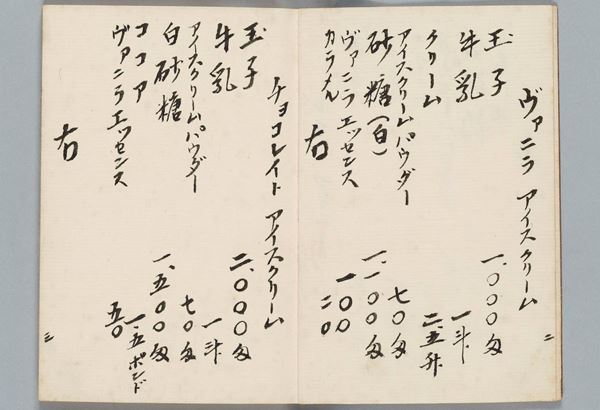 ヴァニラ アイスクリーム
玉子 一.〇〇〇匁
牛乳 一斗
クリーム 二.五升
アイスクリームパウダー 七〇匁
砂糖(白) 一.一〇〇匁
ヴァニラエッセンス 一〇〇
カラメル 二〇
右
二
チョコレイト アイスクリーム
玉子 二.〇〇〇匁
牛乳 一斗
アイスクリームパウダー 七〇匁
白砂糖 一.五〇〇匁
ココア 一.五ポンド
ヴァニラエッセンス 五〇
右
三